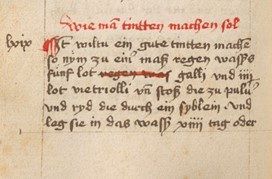 wie mã tintten machen sol
lxix
Jt wiltu ein gute tintten mache
so nym zu ein maß regen wasß
fünf lot regen was galli und iiij
lot vietriolli vñ stoß die zu pulu
und ryd die durch ein syblein und
leg sie in das wasß xiiij tag oder